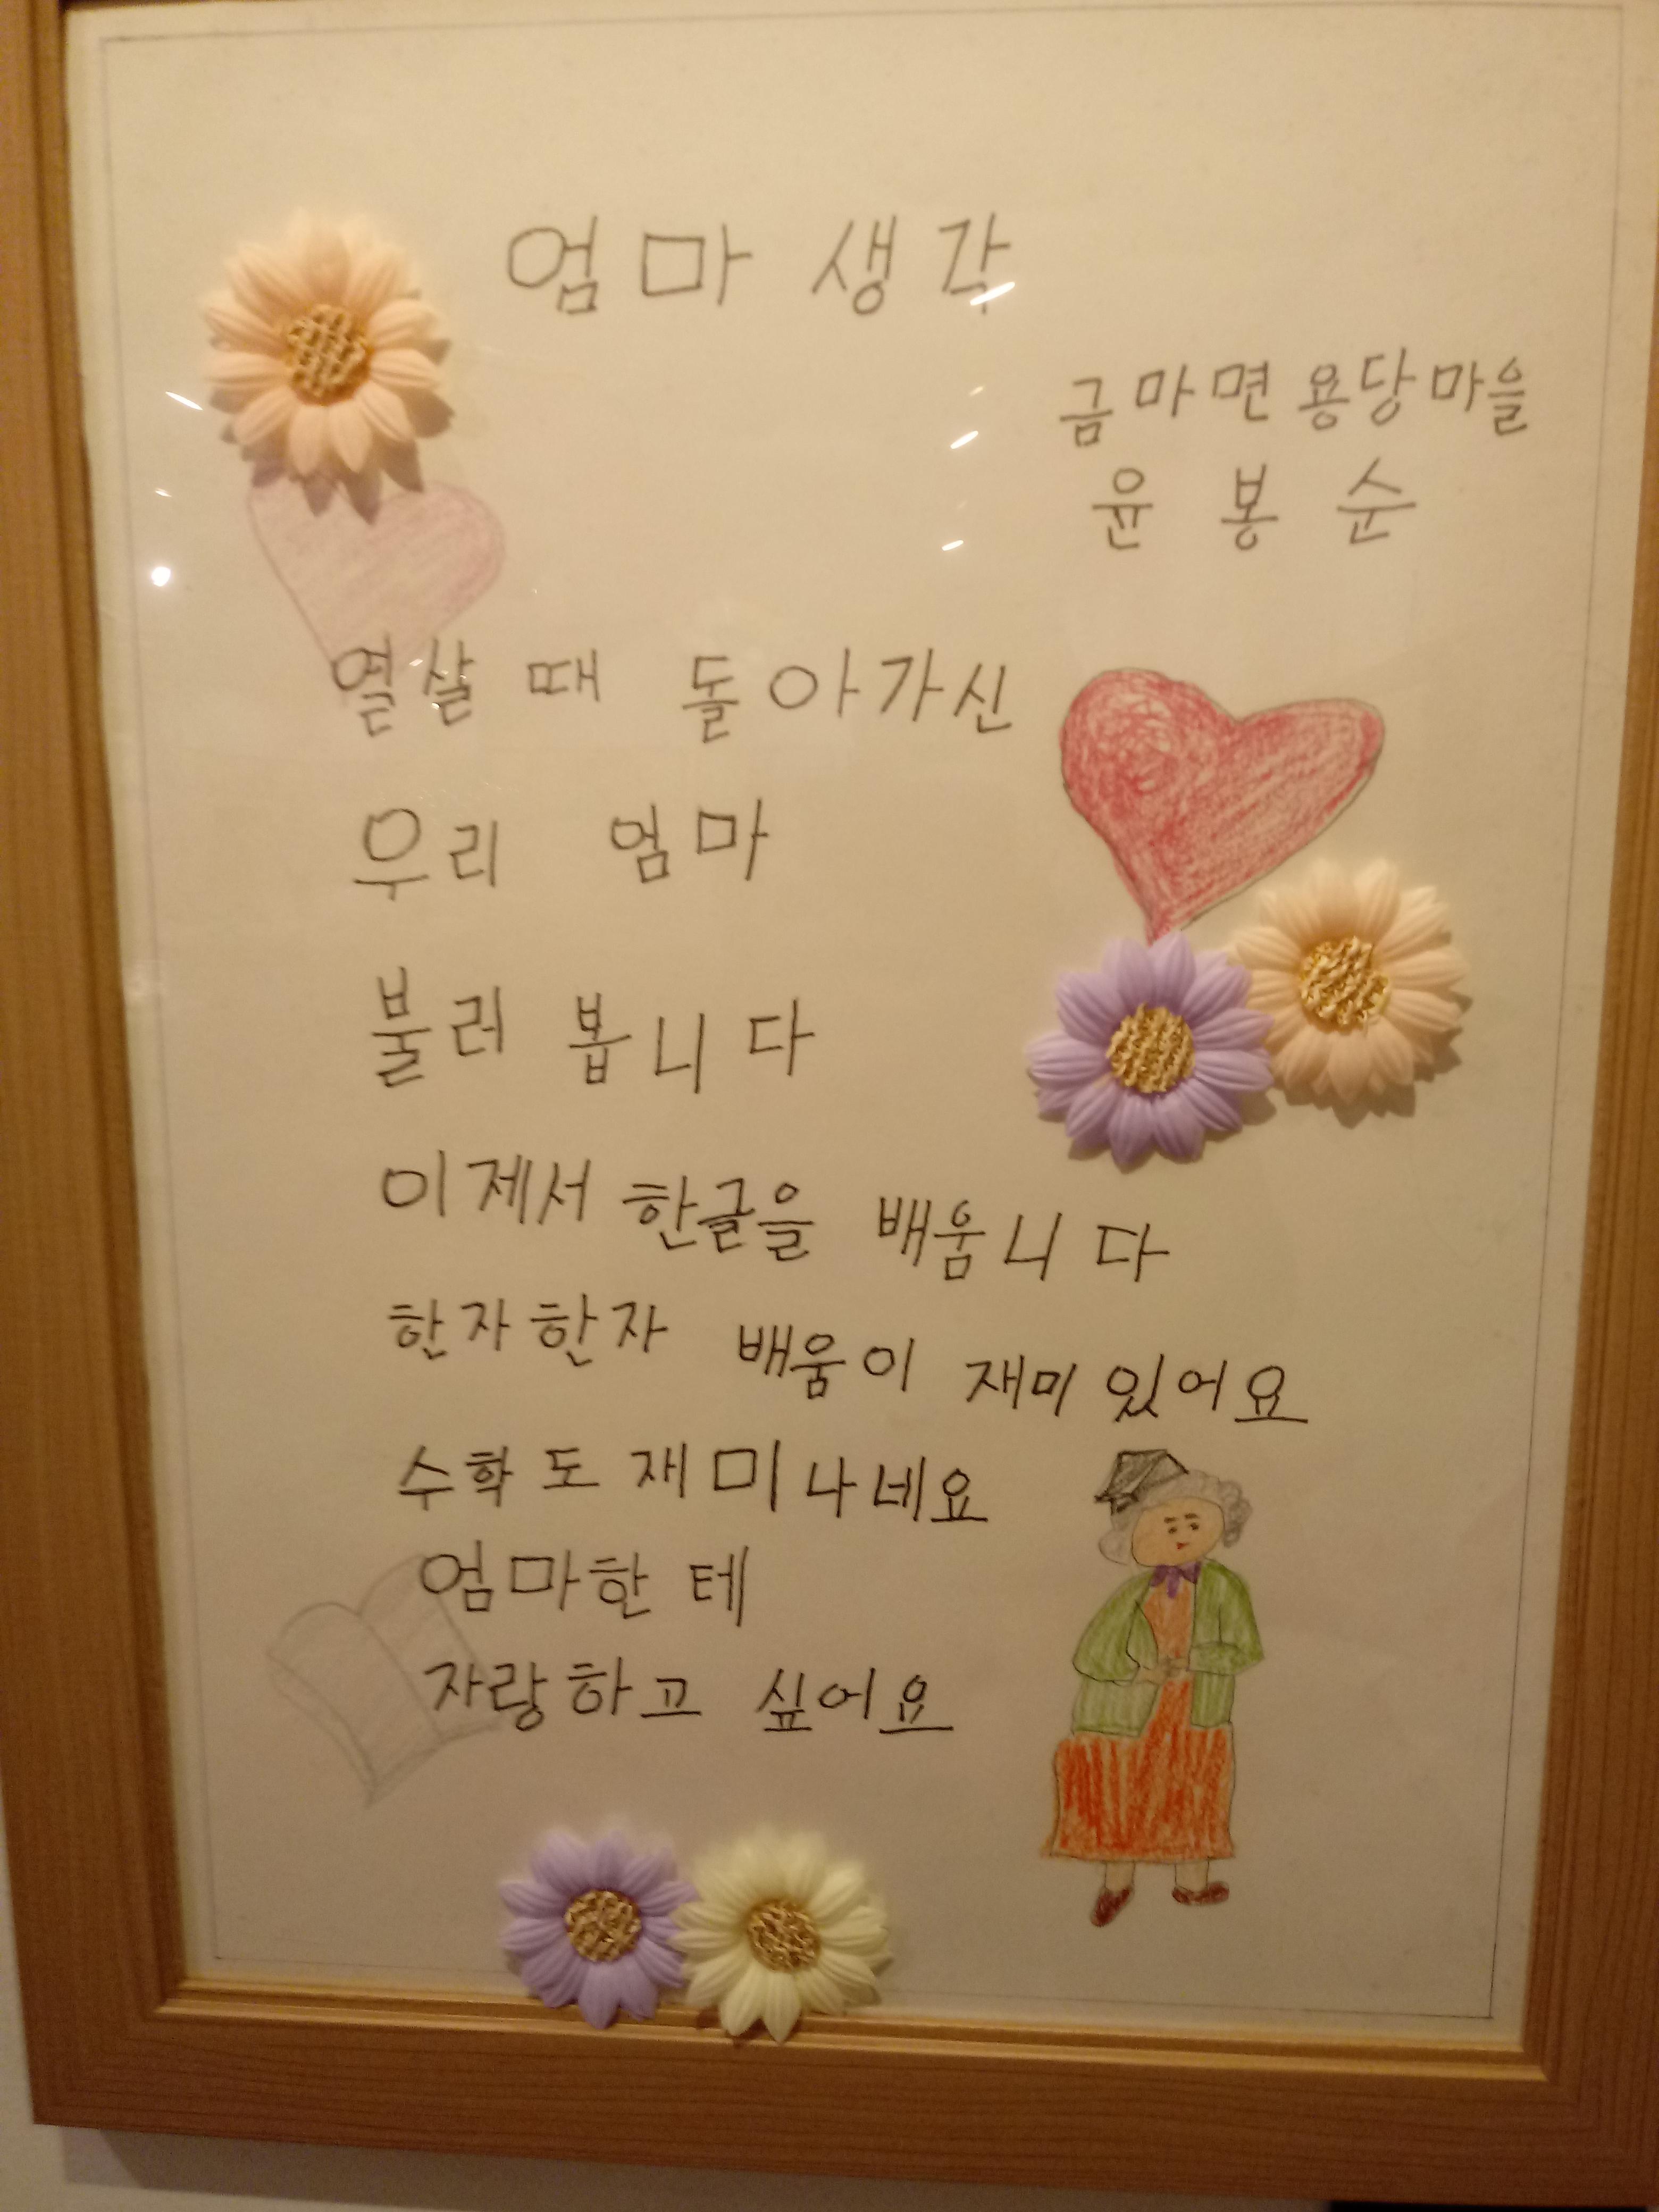 엄마 생각
금마면 용당마을
윤봉순
열살 때 돌아가신
우리 엄마
불러 봅니다
이제서 한글을 배웁니다
한자한자 배움이 재미있어요
수학도 재미나네요
엄마한테
자랑하고 싶어요